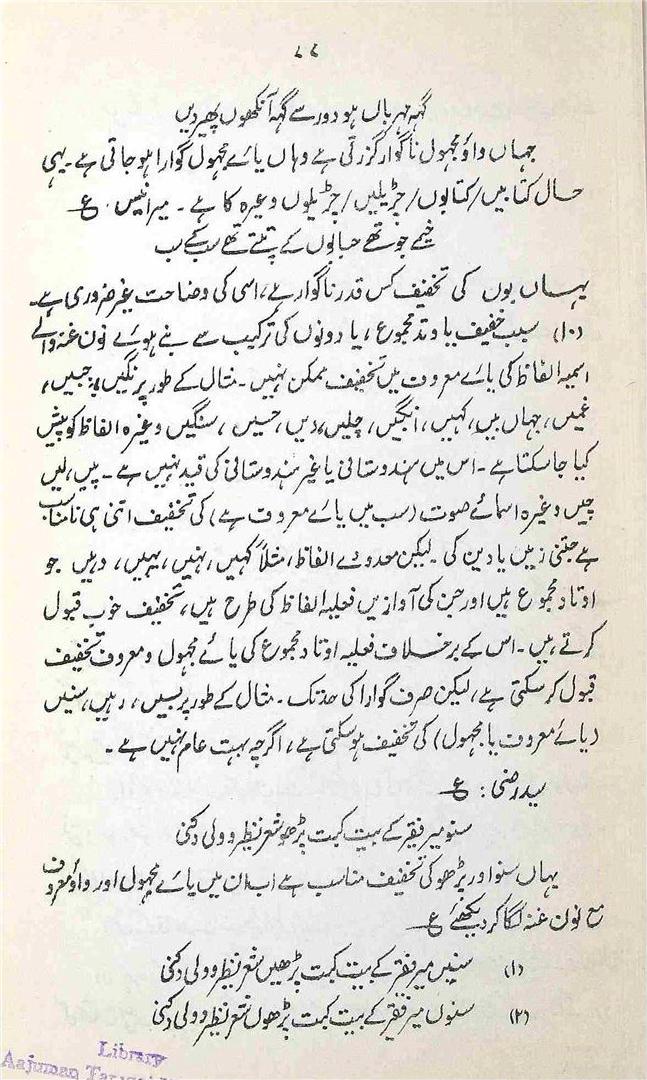 ۸۸
گہہ مہرباں ہو دور سے گہہ آنکھوں پھیر دیں
جہاں واؤ مجہول ناگوار گزرتی ہے وہاں یائے مجہول گوارا ہو جاتی ہے۔ یہی
حال کتابیں/کتابوں/چڑیلیں/چڑیلوں وغیرہ کا ہے۔ میر انیس۔ ع
خیمے جو تھے حبابوں کے تپتے تھے سب کے سب
یہاں بوں کی تخفیف کس قدر ناگوار ہے، اسی کی وضاحت غیر ضروری ہے۔
(۱۰) سبب خفیف یا وتد مجموع، یا دونوں کی ترکیب سے بنے ہوئے نون غنہ والے
اسمیہ الفاظ کی یائے معروف میں تخفیف ممکن نہیں۔ مثال کے طور پر نگیں، جبیں،
غمیں، جہاں بیں، کہیں، انگبیں، چلیں، دیں، حسیں، سنگیں وغیرہ الفاظ کو پیش
کیا جا سکتا ہے۔ اس میں ہندوستانی یا غیر ہندوستانی کی قید نہیں ہے۔ پیں، ٹیں
چیں وغیرہ اسمائے صوت (سب میں یائے معروف ہے) کی تخفیف اتنی ہی نامناسب
ہے جتنی زمیں یا دین کی۔ لیکن معدودے الفاظ، مثلاً کہیں، نہیں، یہیں، وہیں جو
اوتاد مجموع ہیں اور جن کی آوازیں فعلیہ الفاظ کی طرح ہیں، تخفیف خوب قبول
کرتے ہیں۔ اس کے برخلاف فعلیہ اوتاد مجموع کی یائے مجہول و معروف تخفیف
قبول کر سکتی ہے، لیکن صرف گوارا کی حد تک۔ مثال کے طور پر بسیں، رہیں، سنیں
(یائے معروف یا مجہول) کی تخفیف ہو سکتی ہے، اگرچہ بہت عام نہیں ہے۔
سید رضی: ع
سنو میر فقیر کے بیت کبت پڑھو شعر نظیر و ولی دکنی
یہاں سنو اور پڑھو کی تخفیف مناسب ہے اب ان میں یائے مجہول اور واؤ معروف
مع نون غنہ لگا کر دیکھئے ع
(۱) سنیں میر فقیر کے بیت کبت پڑھیں شعر نظیر و ولی دکنی
(۲) سنوں میر فقیر کے بیت کبت پڑھوں شعر نظیر و ولی دکنی
Library